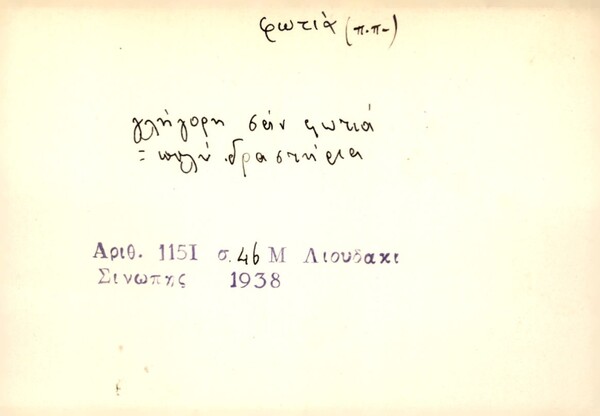 φωτιά (π.π.)
γλήγορη σάν φωτιά
= πολύ δραστήρια
Αριθ. 1151 σ. 46 Μ Λιουδακι
Σινωπης 1938